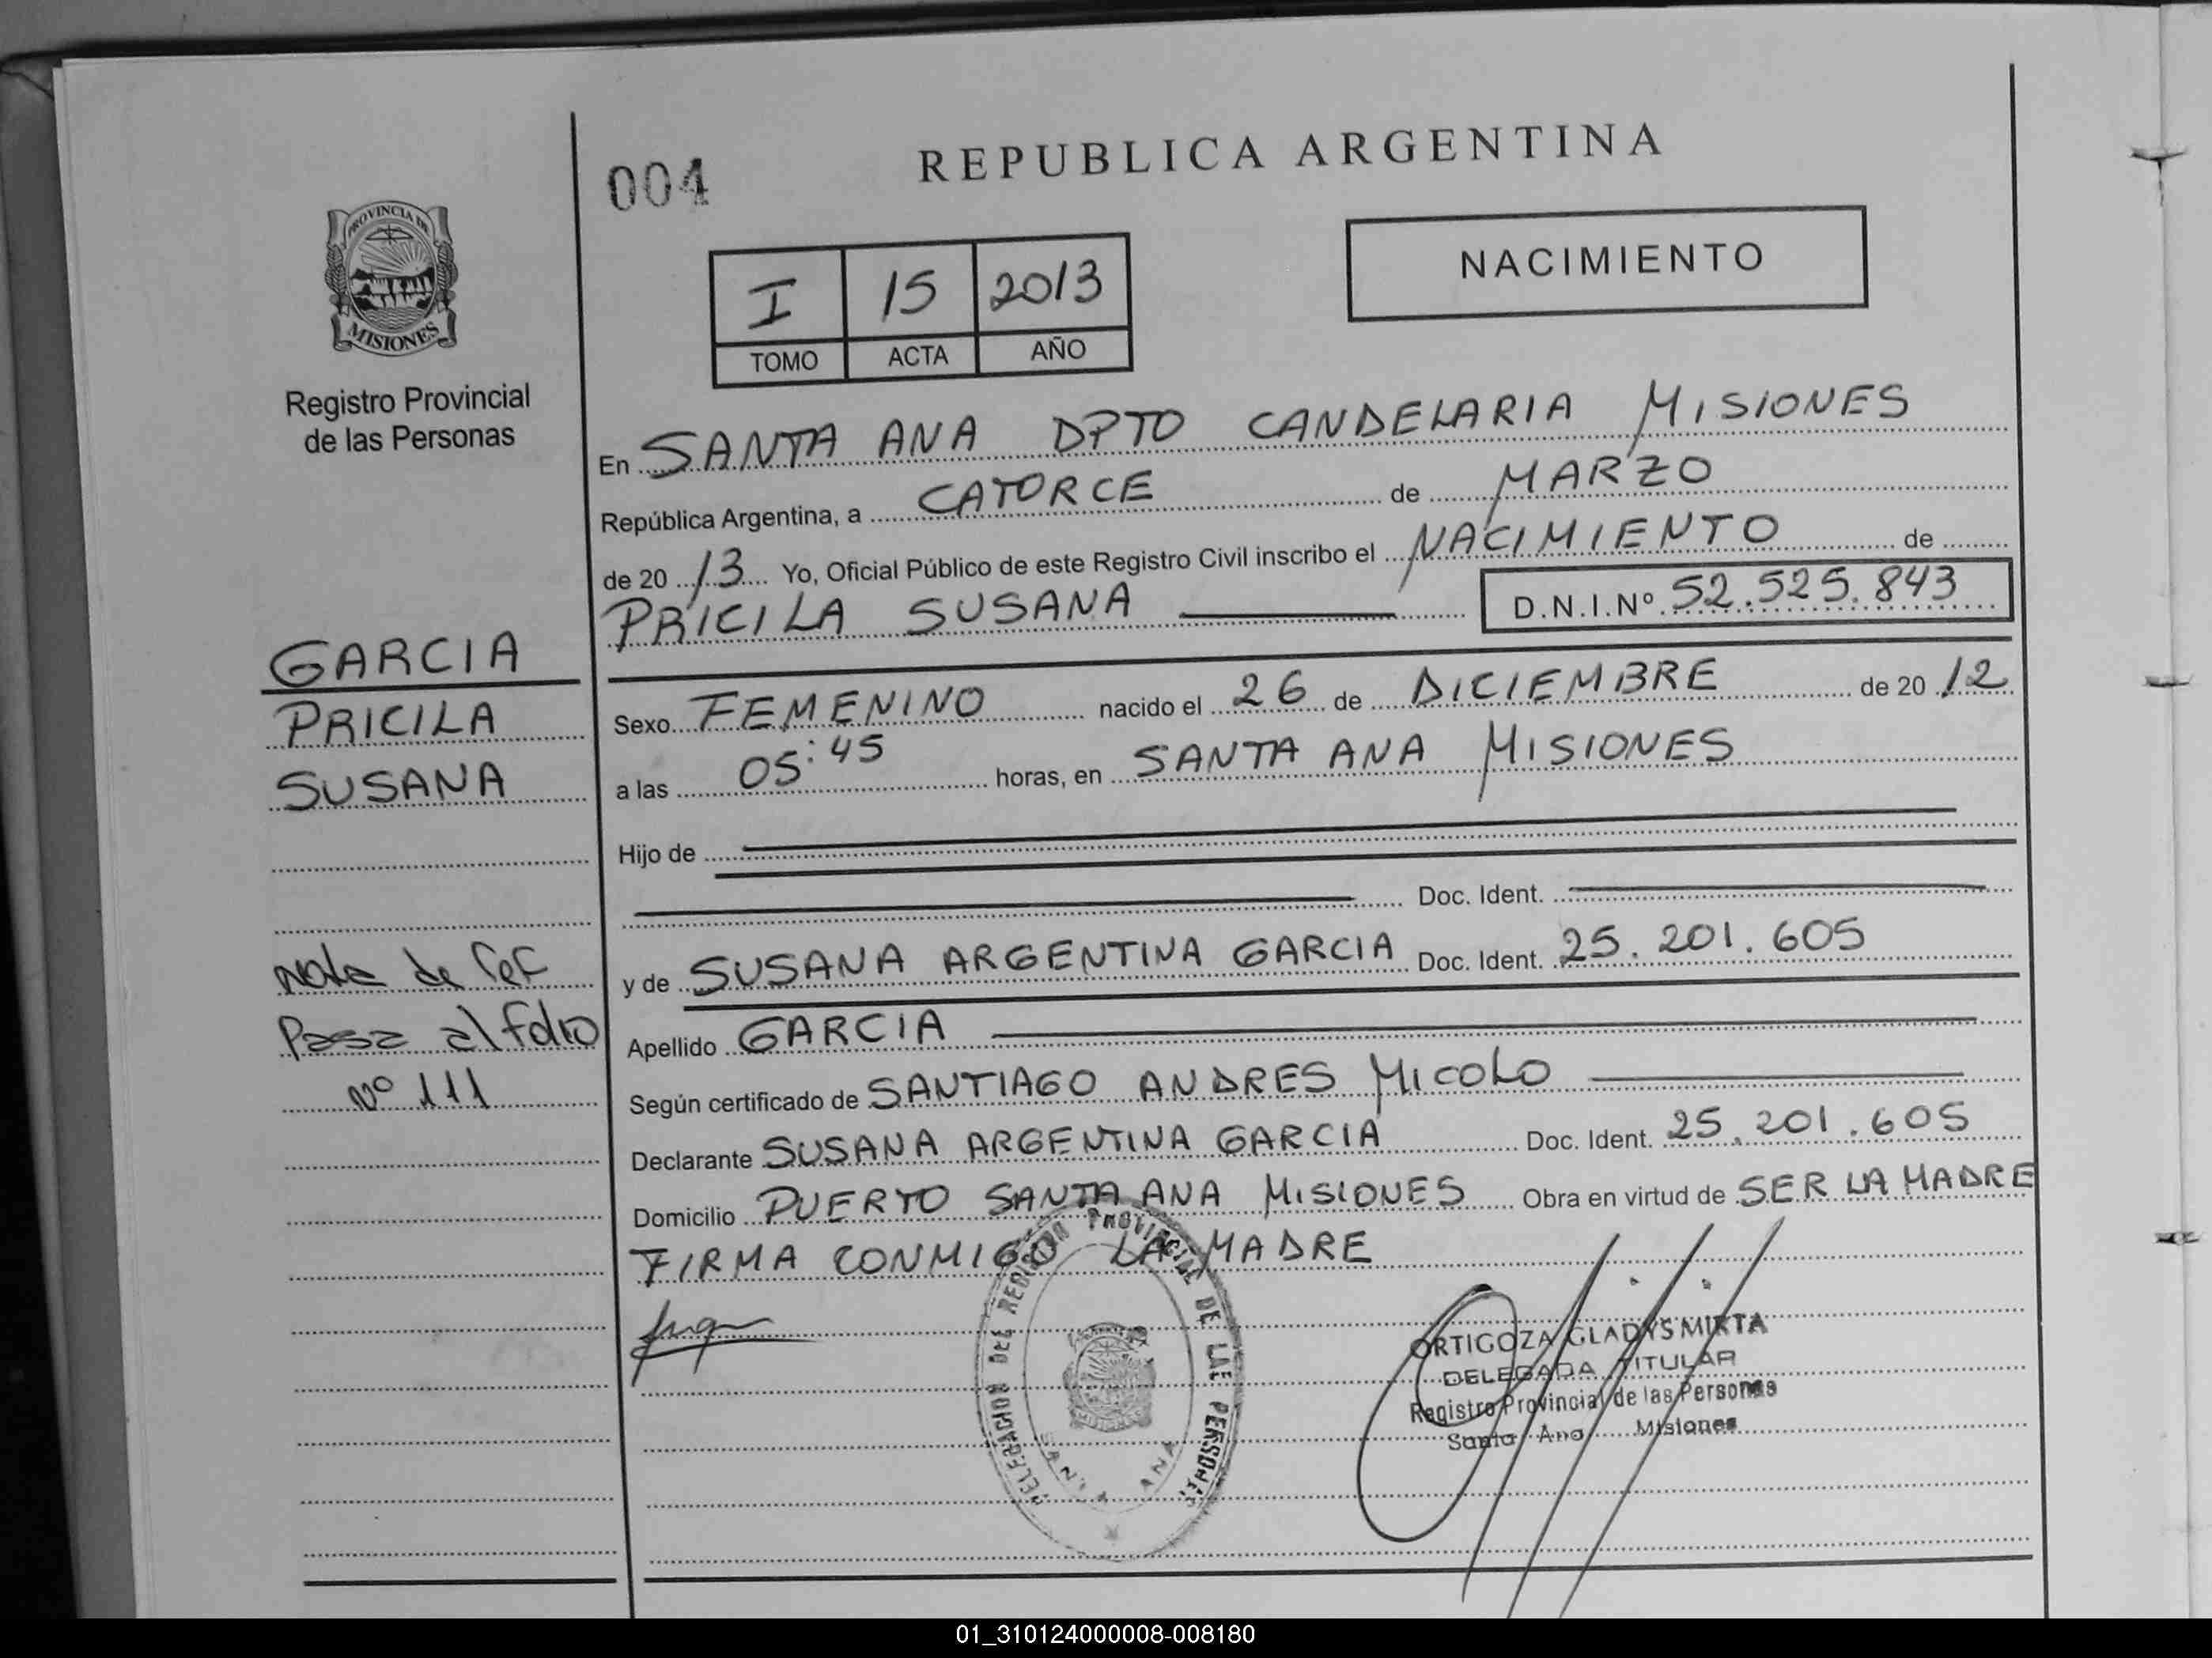 004
REPUBLICA ARGENTINA
PROVINCIA DE
MISIONES
Registro Provincial
de las Personas
NACIMIENTO
I 15 2013
TOMO ACTA AÑO
En SANTA ANA DPTO CANDELARIA MISIONES
República Argentina, a CATORCE de MARZO
de 20 13 Yo, Oficial Público de este Registro Civil inscribo el NACIMIENTO de
PRICILA SUSANA D.N.I.Nº 52.525.843
GARCIA
PRICILA
SUSANA
Sexo FEMENINO nacido el 26 de DICIEMBRE de 20 12
a las 05:45 horas, en SANTA ANA MISIONES
Hijo de
Doc. Ident.
y de SUSANA ARGENTINA GARCIA Doc. Ident. 25.201.605
Nota de Ref
Pasa al folio
Nº 111
Apellido GARCIA
Según certificado de SANTIAGO ANDRES MICOLO
Declarante SUSANA ARGENTINA GARCIA Doc. Ident. 25.201.605
Domicilio PUERTO SANTA ANA MISIONES Obra en virtud de SER LA MADRE
FIRMA CONMIGO LA MADRE
DELEGACION DEL REGISTRO PROVINCIAL DE LAS PERSONAS
SANTA ANA
ORTIGOZA GLADYS MIRTA
DELEGADA TITULAR
Registro Provincial de las Personas
Santa Ana Misiones
01_310124000008-008180